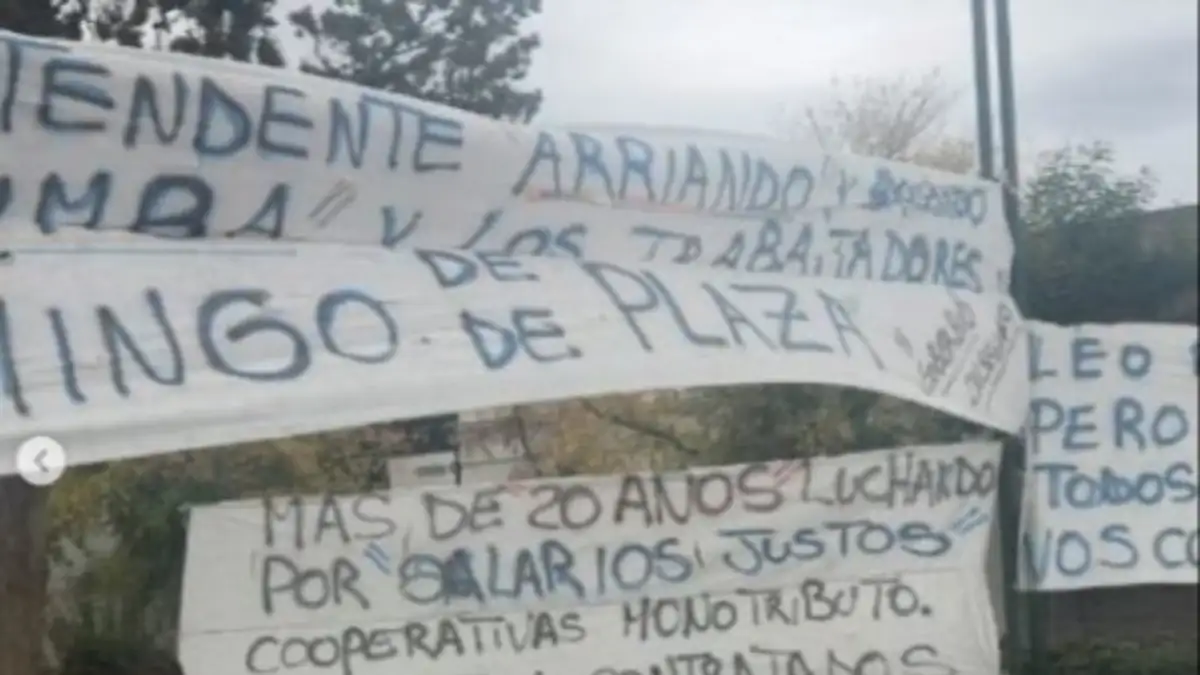 TENDENTE "ARRIANDO" Y
UMBA" Y LOS TRABAJADORES
DE
MINGO DE PLAZA
MAS DE 20 AÑOS LUCHANDO
POR "SALARIOS JUSTOS"
COOPERATIVAS MONOTRIBUTO.
CONTRATADOS
LEO
PERO
TODOS
VOS CO